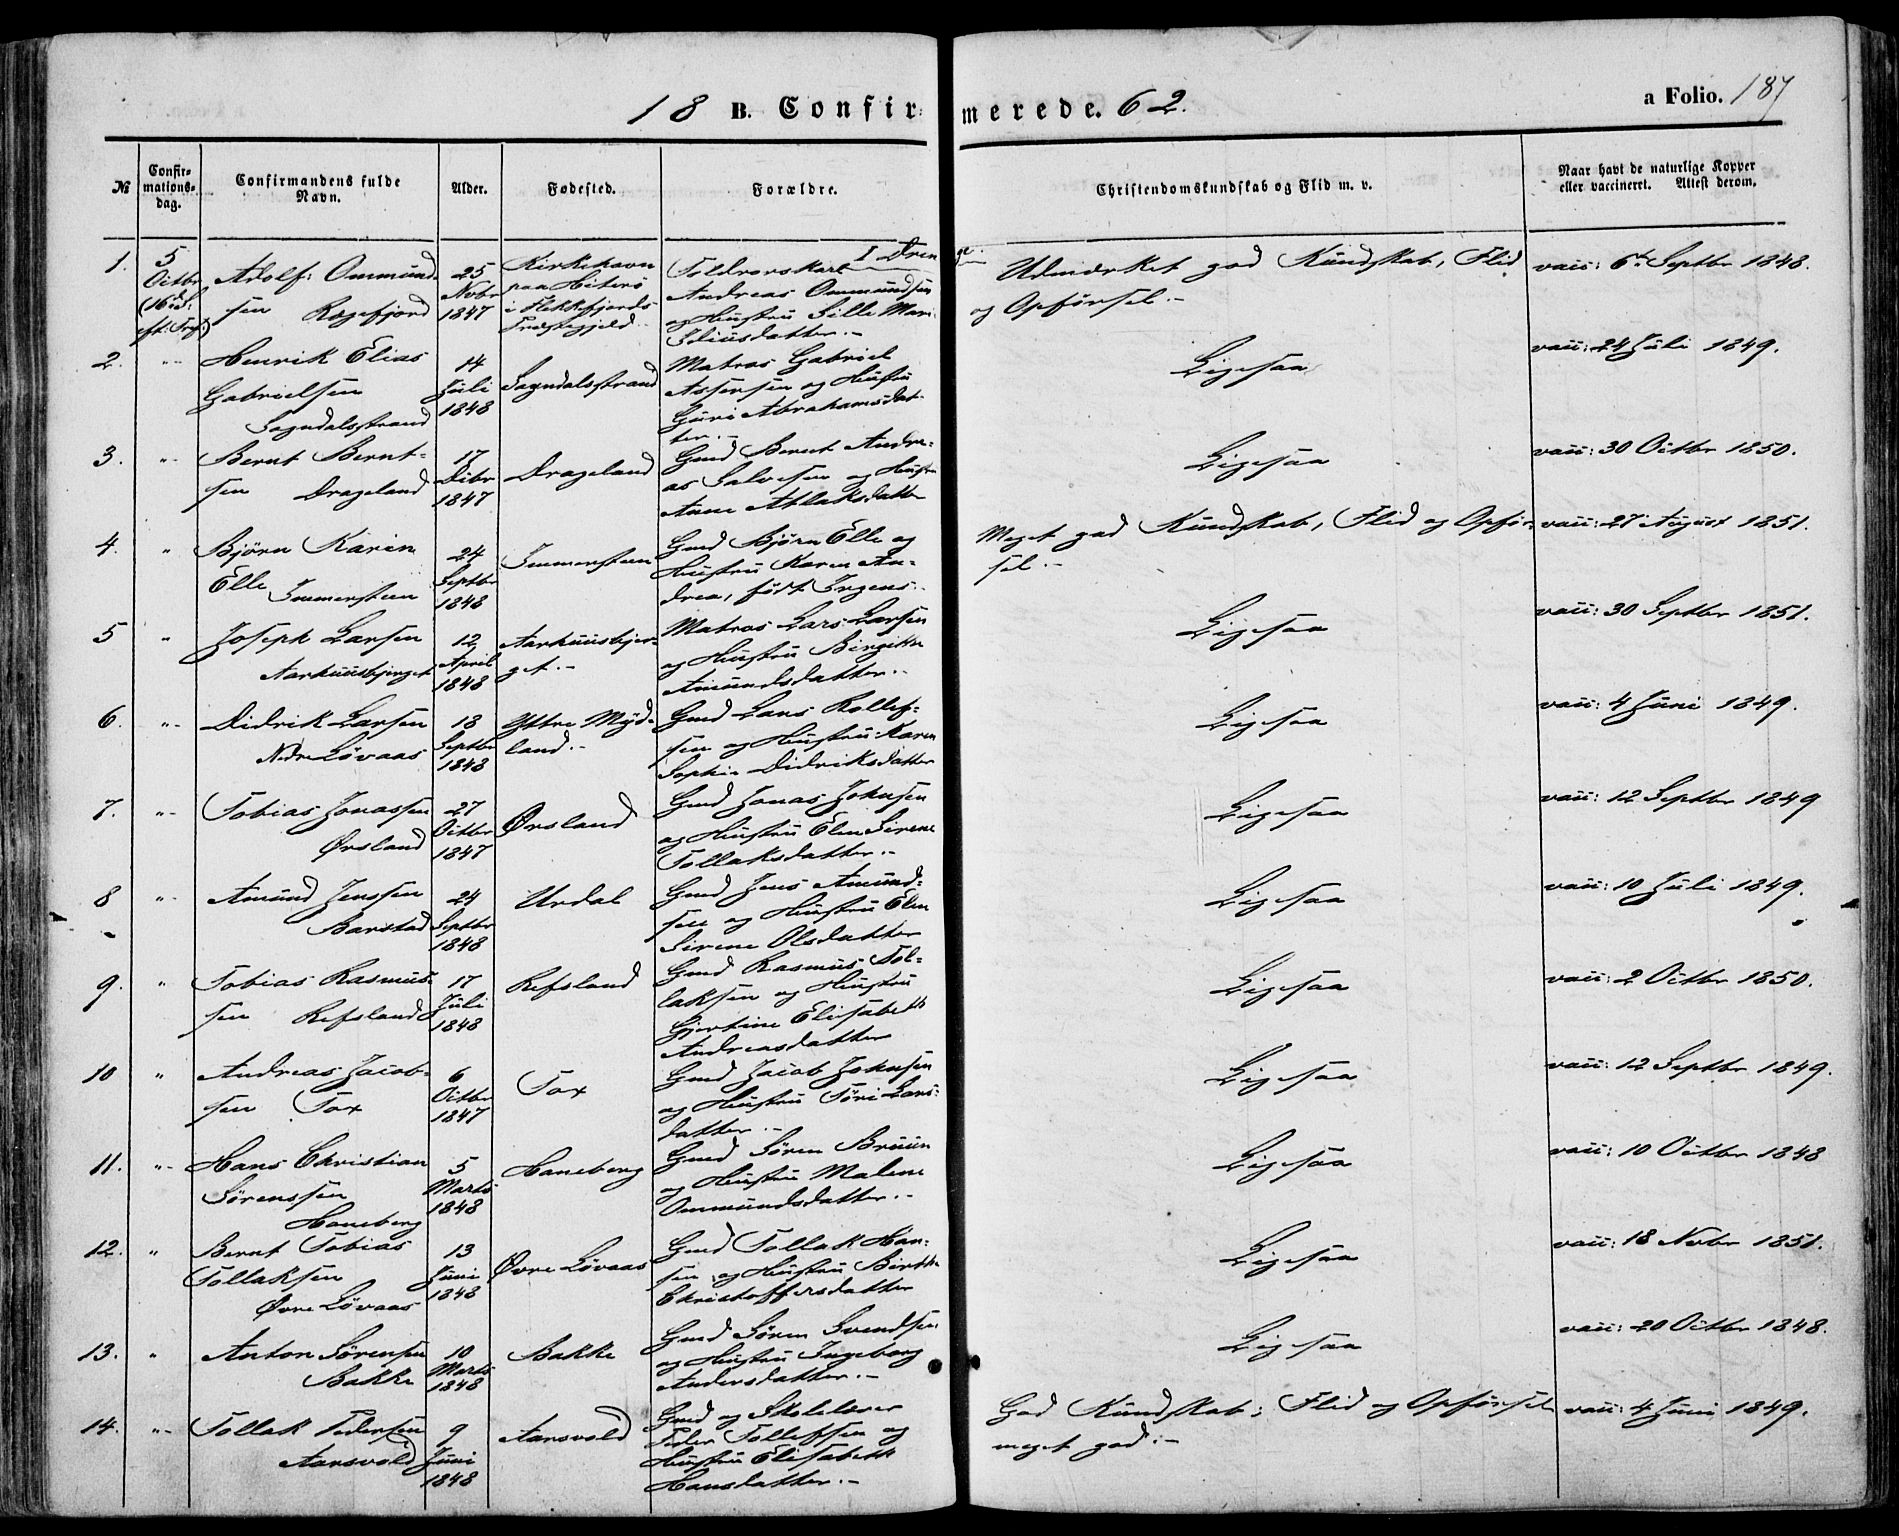 18 B. Confirmerede. 62. a Folio. 187
No
Confirmationsdag.
Confirmandens fulde Navn.
Alder.
Fødested.
Forældre.
Christendomskundskab og Flid m. v.
Naar havt de naturlige Kopper eller vaccineret. Attest derom.
I Drenge.
1.
5 Octbr (16de S. eft. Tref.)
Adolf Ommundsen Rægefjord
25 Novbr 1847
Kirkehavn paa Hiterø i Flekkefjords Præstegjeld
Toldrorskarl Andreas Ommundsen og Hustru Sille Marie Idiusdatter.-
Udmærket god Kundskab, Flid og Opførsel.-
vacc: 6te Septbr 1848.
2.
"-
Henrik Elias Gabrielsen Sogndalsstrand
14 Juli 1848
Sogndalsstrand
Matros Gabriel Assersen og Hustru Guri Abrahamsdatter.-
Ligesaa
vacc: 24 Juli 1849.
3.
"-
Bernt Berntsen Drageland
17 Decbr 1847
Drageland
Gmd Bernt Andreas Salvesen og Hustru Anne Atlaksdatter
Ligesaa
vacc: 30 Octbr 1850.
4.
"
Bjørn Karin Elle Immersteen
24 Septbr 1848
Immersteen
Gmd Bjørn Elle og Hustru Karen Andrea, født Irgens.-
Meget god Kundskab, Flid og Opførsel.-
vacc: 27 August 1851.
5
"
Joseph Larsen Aarhuusbjerget
12 April 1848
Aarhuusbjerget.-
Matros Lars Larsen og Hustru Birgitte Amundsdatter.-
Ligesaa
vacc: 30 Septbr 1851.
6.
"-
Didrik Larsen Nedre Løvaas
18 Septbr 1848
Yttre Mydland.-
Gmd Lars Rollefsen og Hustru Karen Sophie Didriksdatter
Ligesaa
vacc: 4 Juni 1849.
7.
"-
Tobias Jonassen Ørsland
27 Octbr 1847
Ørsland
Gmd Jonas Johnsen og Hustru Elen Sirene Tollaksdatter.-
Ligesaa
vacc: 12 Septbr 1849
8
"-
Amund Jenssen Barstad
24 Septbr 1848
Urdal
Gmd Jens Amundsen og Hustru Elen Sirene Olsdatter
Ligesaa
vacc: 10 Juli 1849.
9.
"
Tobias Rasmussen Refsland
17 Juli 1848
Refsland
Gmd Rasmus Tollaksen og Hustru Gjertine Elisabeth Andreasdatter
Ligesaa
vacc: 2 Octbr 1850.
10
"
Andreas Jacobsen Tox
6 Octbr 1847
Tox
Gmd Jacob Johnsen og Hustru Tøri Larsdatter.-
Ligesaa
vacc: 12 Septbr 1849.
11.
"-
Hans Christian Sørenssen Haneberg
5 Marts 1848
Haneberg
Gmd Søren Bruun og Hustru Malene Ommundsdatter.-
Ligesaa
vacc: 10 Octbr 1848
12.
"
Bernt Tobias Tollaksen Øvre Løvaas
13 Juni 1848
Øvre Løvaas
Gmd Tollak Hansen og Hustru Birthe Christoffersdatter
Ligesaa
vacc: 18 Novbr 1851.
13.
"
Anton Sørensen Bakke
10 Marts 1848
Bakke
Gmd Søren Svendsen og Hustru Ingeborg Andersdatter.-
Ligesaa
vacc: 20 Octbr 1848.
14.
"-
Tollak Pedersen Aarsvold
9 Juni 1848
Aarsvold
Gmd og Skolelærer Peder Tollefsen og Hustru Elisabeth Hansdatter.-
God Kundskab; Flid og Opførsel meget god.-
vacc: 4 Juni 1849.